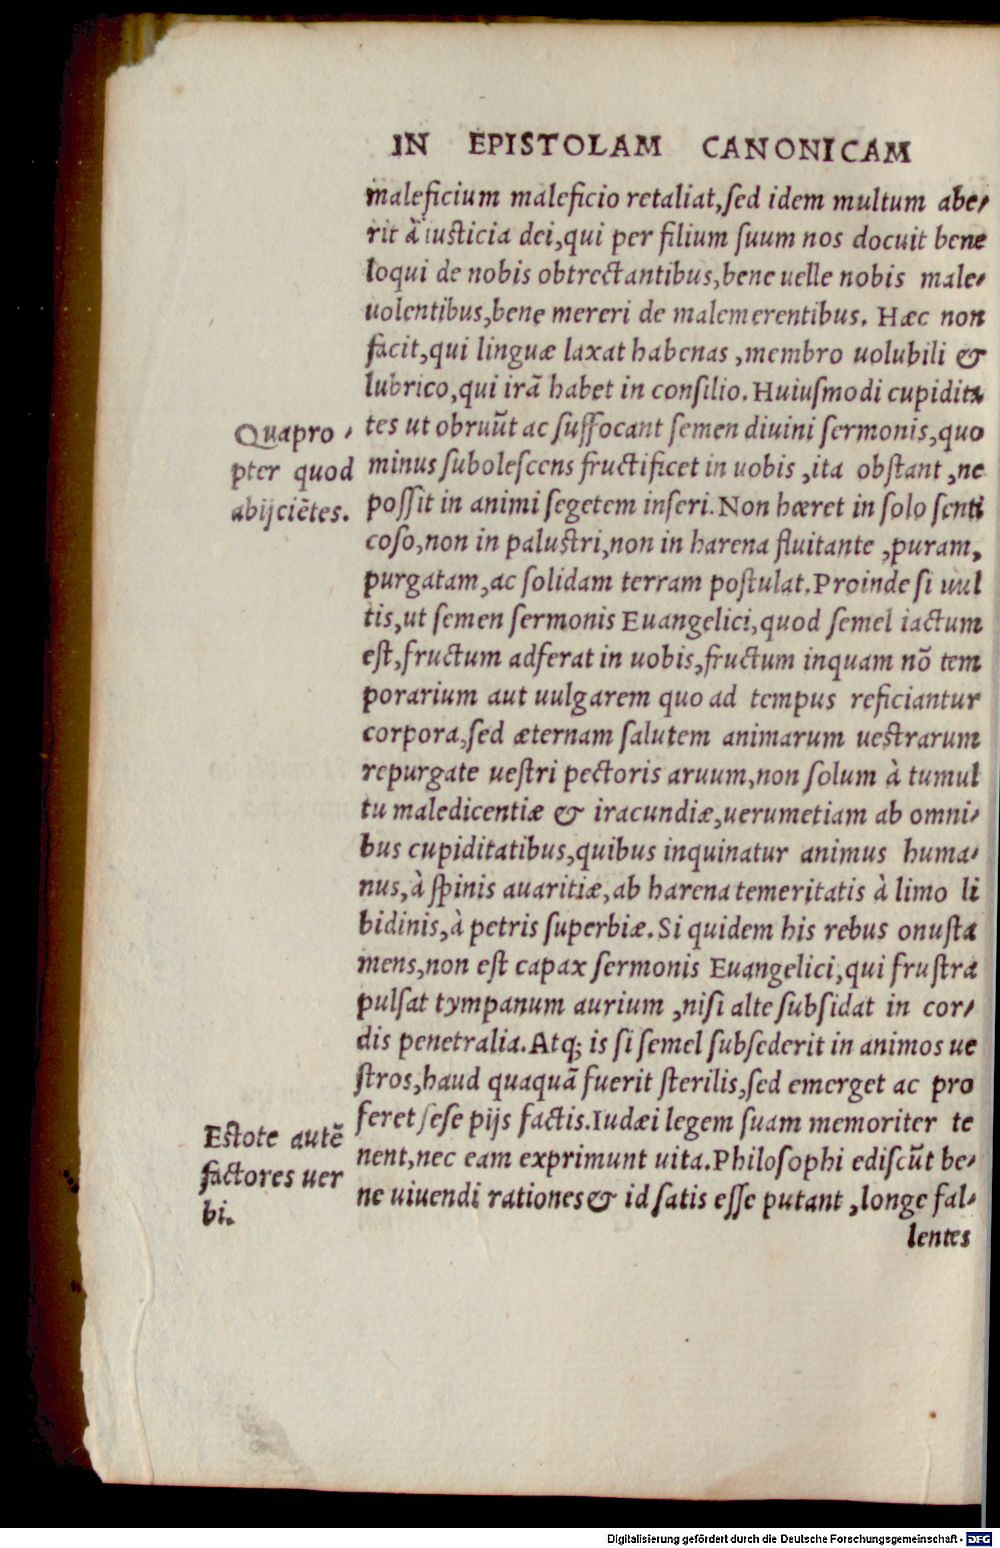 IN EPISTOLAM CANONICAM
maleficium maleficio retaliat,ſed idem multum abe-
rit à iuſticia dei,qui per filium ſuum nos docuit bene
loqui de nobis obtrectantibus,bene uelle nobis male-
uolentibus,bene mereri de malemerentibus. Hæc non
facit,qui linguæ laxat habenas ,membro uolubili &
lubrico,qui irã habet in conſilio. Huiuſmodi cupidita
tes ut obruũt ac ſuffocant ſemen diuini ſermonis,quo
minus ſuboleſcens fructificet in uobis ,ita obſtant ,ne
poſſit in animi ſegetem inſeri. Non hæret in ſolo ſenti
coſo,non in paluſtri,non in harena fluitante ,puram,
purgatam,ac ſolidam terram poſtulat. Proinde ſi uul
tis,ut ſemen ſermonis Euangelici,quod ſemel iactum
eſt,fructum adferat in uobis,fructum inquam nõ tem
porarium aut uulgarem quo ad tempus reficiantur
corpora,ſed æternam ſalutem animarum ueſtrarum
repurgate ueſtri pectoris aruum,non ſolum à tumul
tu maledicentiæ & iracundiæ,uerumetiam ab omni-
bus cupiditatibus,quibus inquinatur animus huma-
nus,à ſpinis auaritiæ,ab harena temeritatis à limo li
bidinis,à petris ſuperbiæ. Si quidem his rebus onuſta
mens,non eſt capax ſermonis Euangelici,qui fruſtra
pulſat tympanum aurium ,niſi alte ſubſidat in cor-
dis penetralia. Atq; is ſi ſemel ſubſederit in animos ue
ſtros,haud quaquã fuerit ſterilis,ſed emerget ac pro
feret ſeſe pijs factis. Iudæi legem ſuam memoriter te
nent,nec eam exprimunt uita. Philoſophi ediſcũt be-
ne uiuendi rationes & id ſatis eſſe putant ,longe fal-
lentes
Quapro-
pter quod
abijciẽtes.
Eſtote autẽ
factores uer
bi.
Digitalisierung gefördert durch die Deutsche Forschungsgemeinschaft - DFG